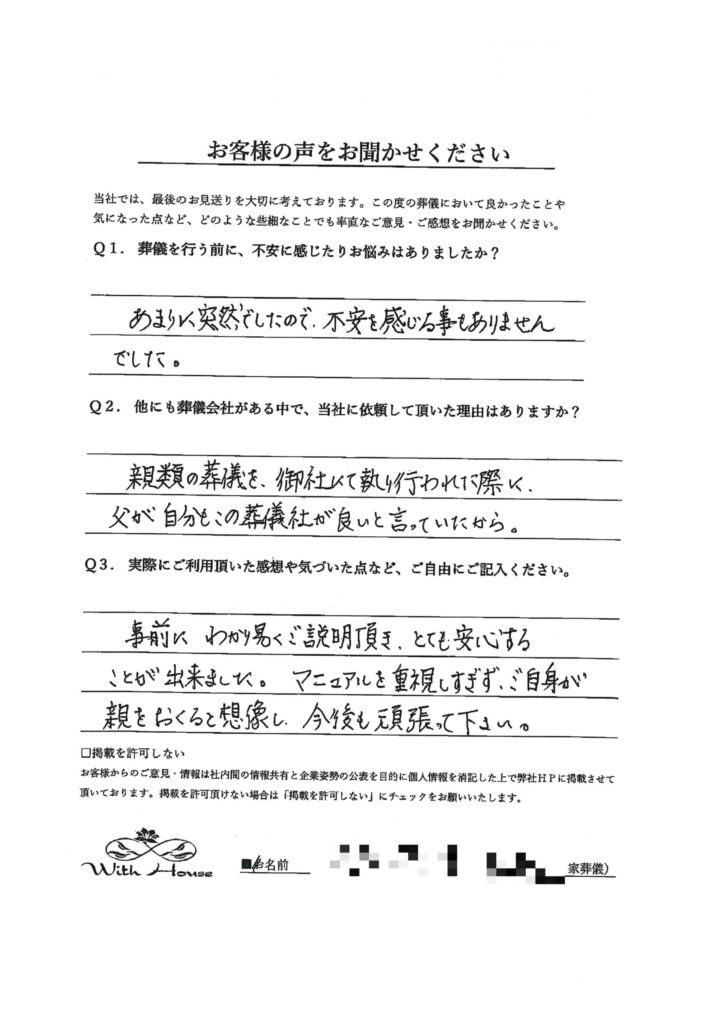 お客様の声をお聞かせください
当社では、最後のお見送りを大切に考えております。この度の葬儀において良かったことや
気になった点など、どのような些細なことでも率直なご意見・ご感想をお聞かせください。
Q1. 葬儀を行う前に、不安に感じたりお悩みはありましたか?
あまりに突然でしたので、不安を感じる事もありません
でした。
Q2. 他にも葬儀会社がある中で、当社に依頼して頂いた理由はありますか?
親類の葬儀を、御社にて執り行われた際に、
父が自分もこの葬儀社が良いと言っていたから。
Q3. 実際にご利用頂いた感想や気づいた点など、ご自由にご記入ください。
事前に わかり易くご説明頂き、とても安心する
ことが出来ました。 マニュアルを重視しすぎず、ご自身が
親をおくると想像し、今後も頑張って下さい。
□掲載を許可しない
お客様からのご意見・情報は社内間の情報共有と企業姿勢の公表を目的に個人情報を消記した上で弊社HPに掲載させて
頂いております。掲載を許可頂けない場合は「掲載を許可しない」にチェックをお願いいたします。
With House
お名前 家葬儀)